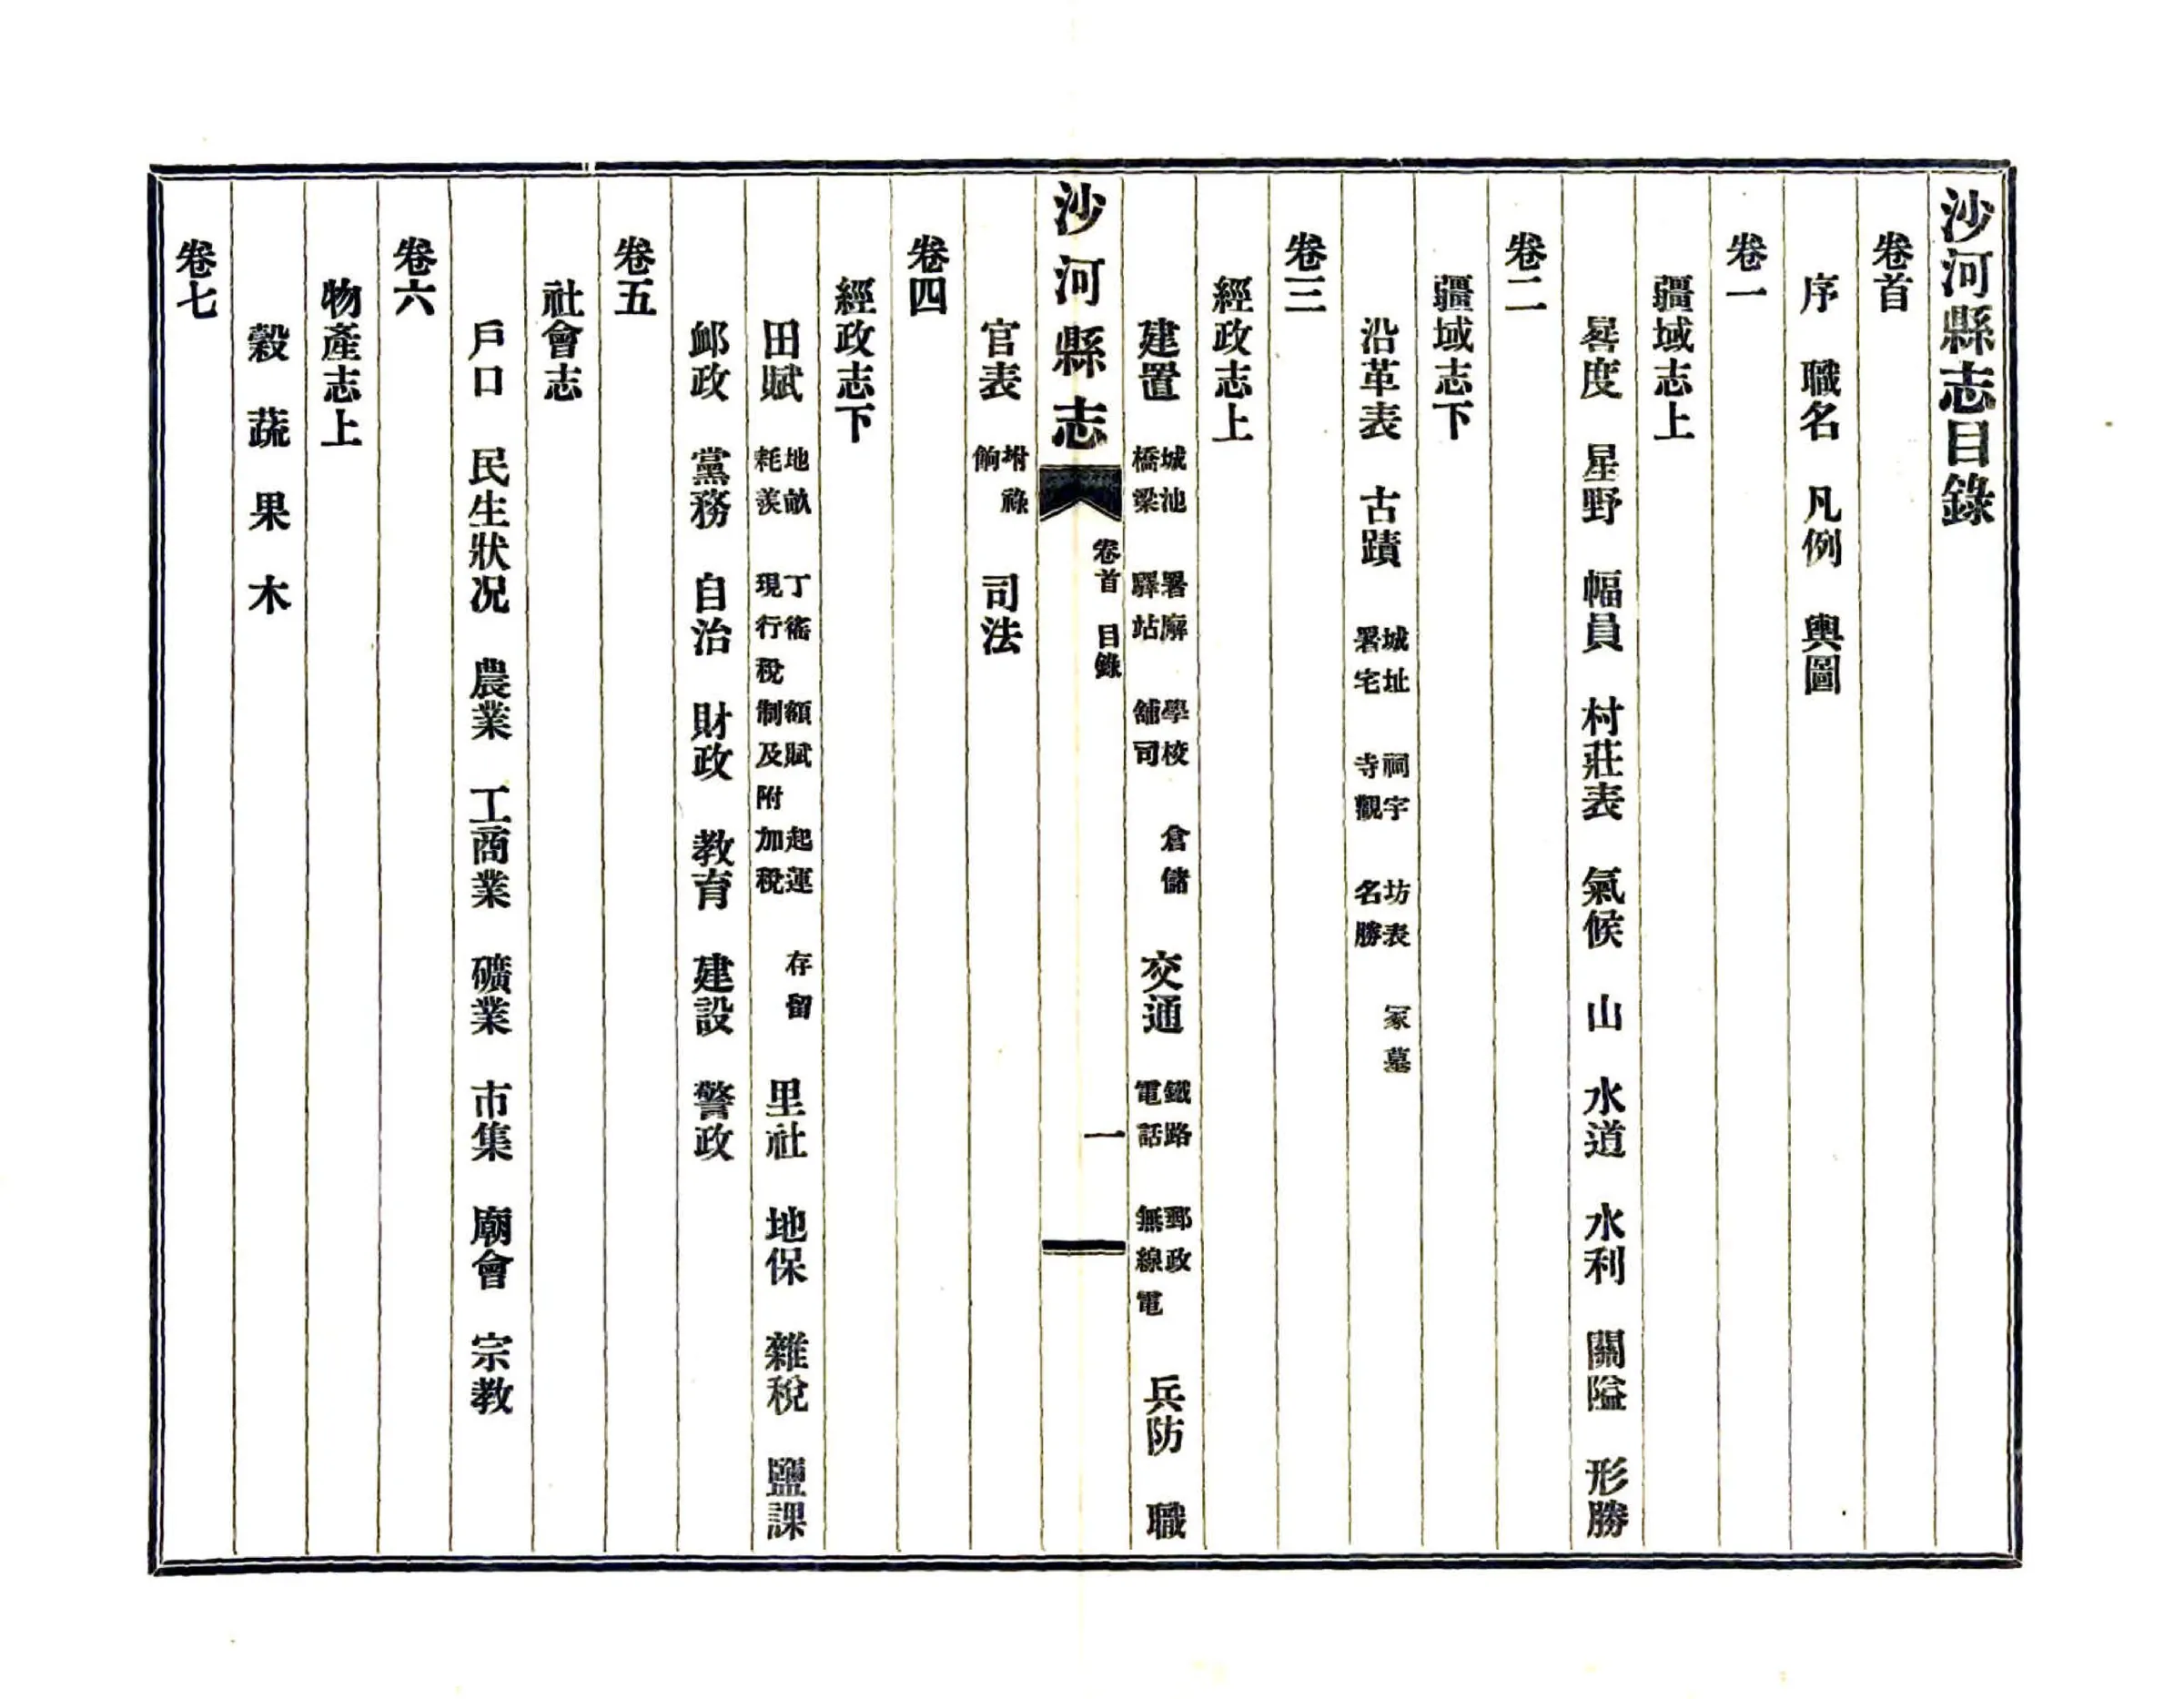 沙河縣志目錄
卷首
序　職名　凡例　輿圖
卷一
疆域志上
晷度　星野　幅員　村莊表　氣候　山　水道　水利　關隘　形勝
卷二
疆域志下
沿革表　古蹟　城址　祠宇　坊表　冢墓
署宅　寺觀　名勝
卷三
經政志上
建置　城池　署廨　學校　倉儲　交通　鐵路　郵政　兵防　職
橋梁　驛站　舖司　電話　無線電
沙河縣志　卷首　目錄　一
官表　坿祿　司法
餉
卷四
經政志下
田賦　地畝　丁銀　額賦　起運　存留　里社　地保　雜稅　鹽課
耗羨　現行稅制及附加稅
卹政　黨務　自治　財政　教育　建設　警政
卷五
社會志
戶口　民生狀况　農業　工商業　礦業　市集　廟會　宗教
卷六
物產志上
穀　蔬　果　木
卷七